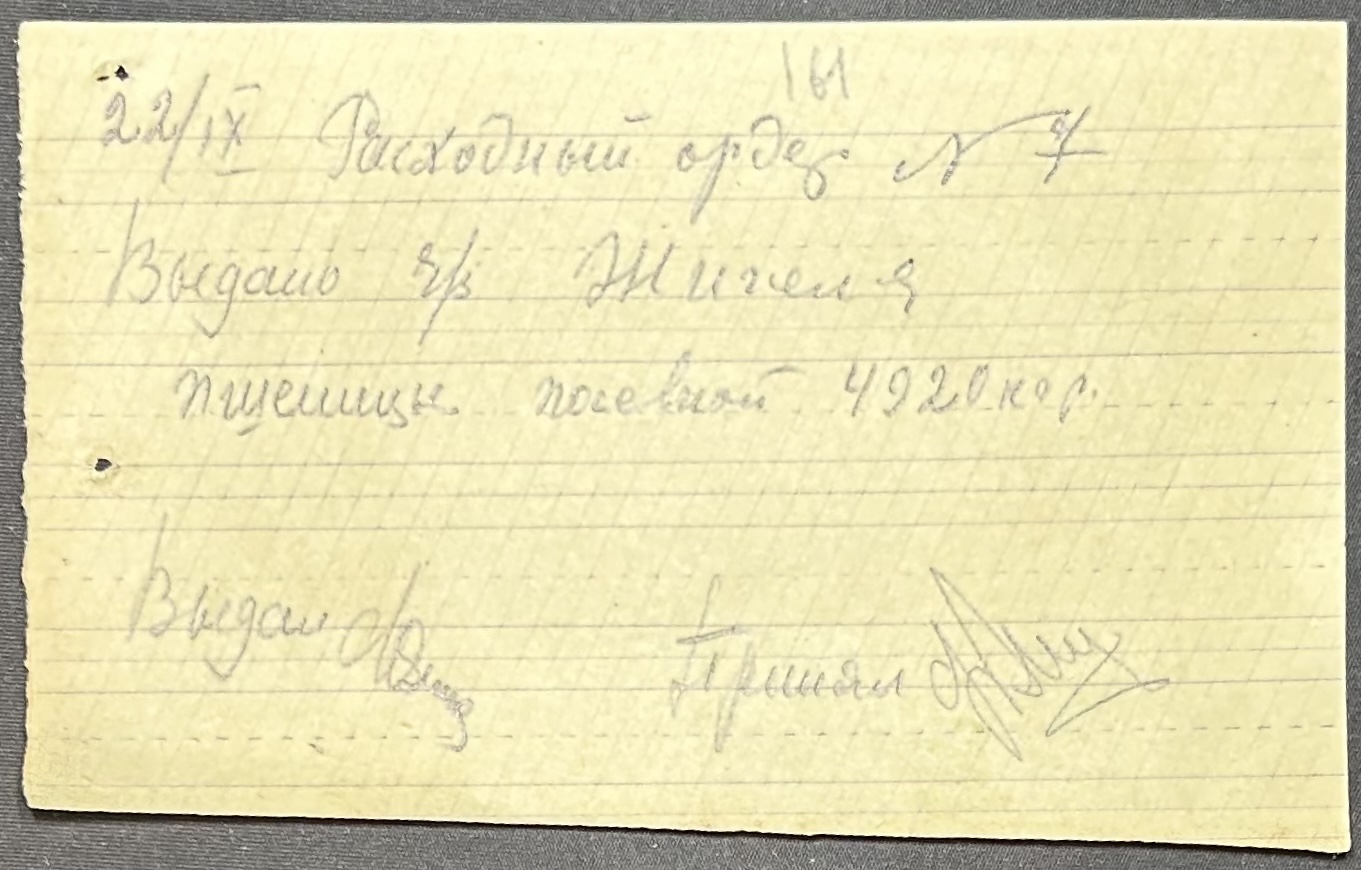 161
22/IX Расходный ордер N 7
Выдано гр Жигеля
пшеницы посевной 4920 кгр.
Выдал
Принял